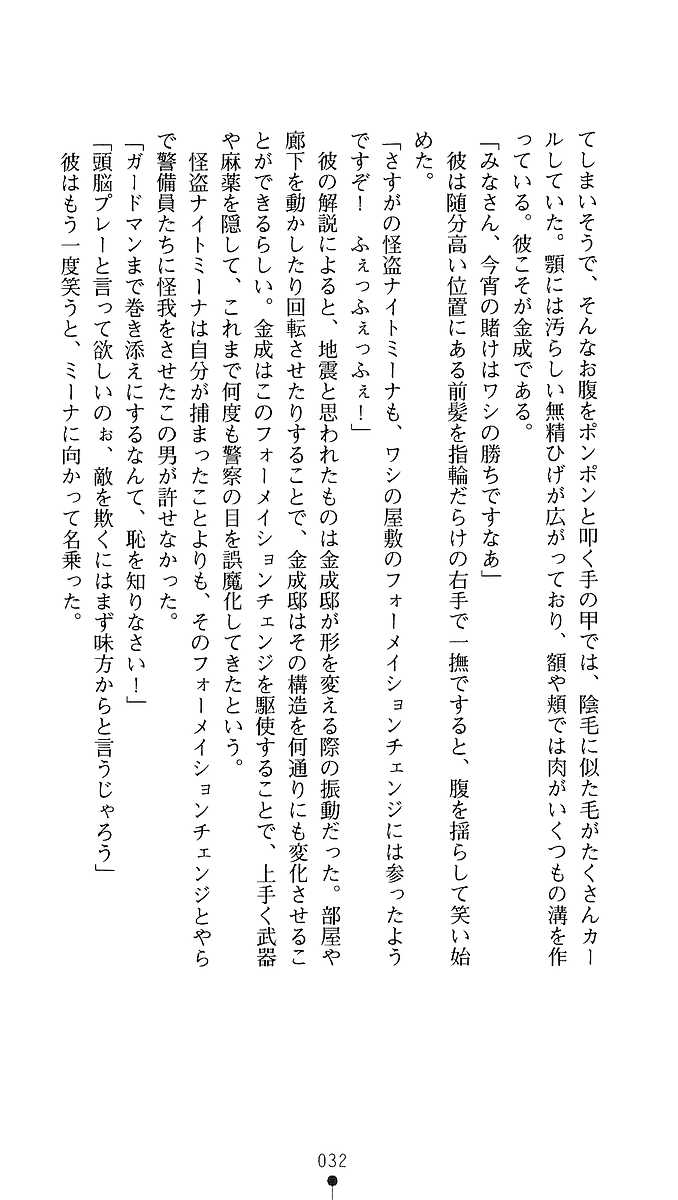 てしまいそうで、そんなお腹をポンポンと叩く手の甲では、陰毛に似た毛がたくさんカー
ルしていた。顎には汚らしい無精ひげが広がっており、額や頬では肉がいくつもの溝を作
っている。彼こそが金成である。
「みなさん、今宵の賭けはワシの勝ちですなぁ」
彼は随分高い位置にある前髪を指輪だらけの右手で一撫でずると、腹を揺らして笑い始
めた。
「さすがの怪盗ナイトミーナも、ワシの屋敷のフォーメイションチェンジには参ったよう
ですぞ！　ふぇっふぇっふぇ！」
彼の解説によると、地震と思われたものは金成邸が形を変える際の振動だった。部屋や
廊下を動かしたり回転させたりすることで、金成邸はその構造を何通りにも変化させるこ
とができるらしい。金成はこのフォーメイションチェンジを駆使することで、上手く武器
や麻薬を隠して、これまで何度も警察の目を誤魔化してきたという。
怪盗ナイトミーナは自分が捕まったことよりも、そのフォーメイションチェンジとやら
で警備員たちに怪我をさせたこの男が許せなかった。
「ガードマンまで巻き添えにするなんて、恥を知りなさい！」
「頭脳プレーと言って欲しいのぉ、敵を欺くにはまず味方からと言うじゃろう」
彼はもう一度笑うと、ミーナに向かって名乗った。
032